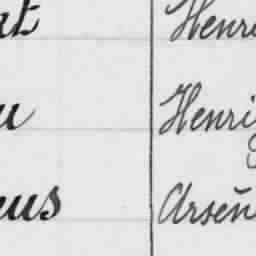 at Henri
u Henri
eus Arsèn